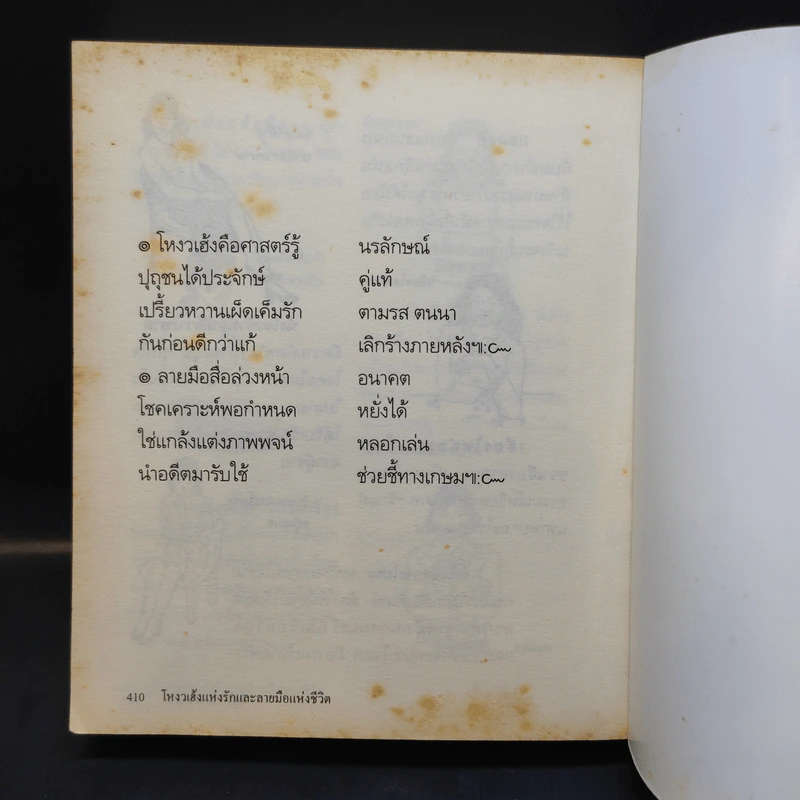 ๏ โหงวเฮ้งคือศาสตร์รู้ นรลักษณ์
ปุถุชนได้ประจักษ์ คู่แท้
เปรี้ยวหวานเผ็ดเค็มรัก ตามรส ตนนา
กันก่อนดีกว่าแก้ เลิกร้างภายหลัง๚ะ๛
๏ ลายมือสื่อล่วงหน้า อนาคต
โชคเคราะห์พอกำหนด หยั่งได้
ใช่แกล้งแต่งภาพพจน์ หลอกเล่น
นำอดีตมารับใช้ ช่วยชี้ทางเกษม๚ะ๛
410 โหงวเฮ้งแห่งรักและลายมือแห่งชีวิต